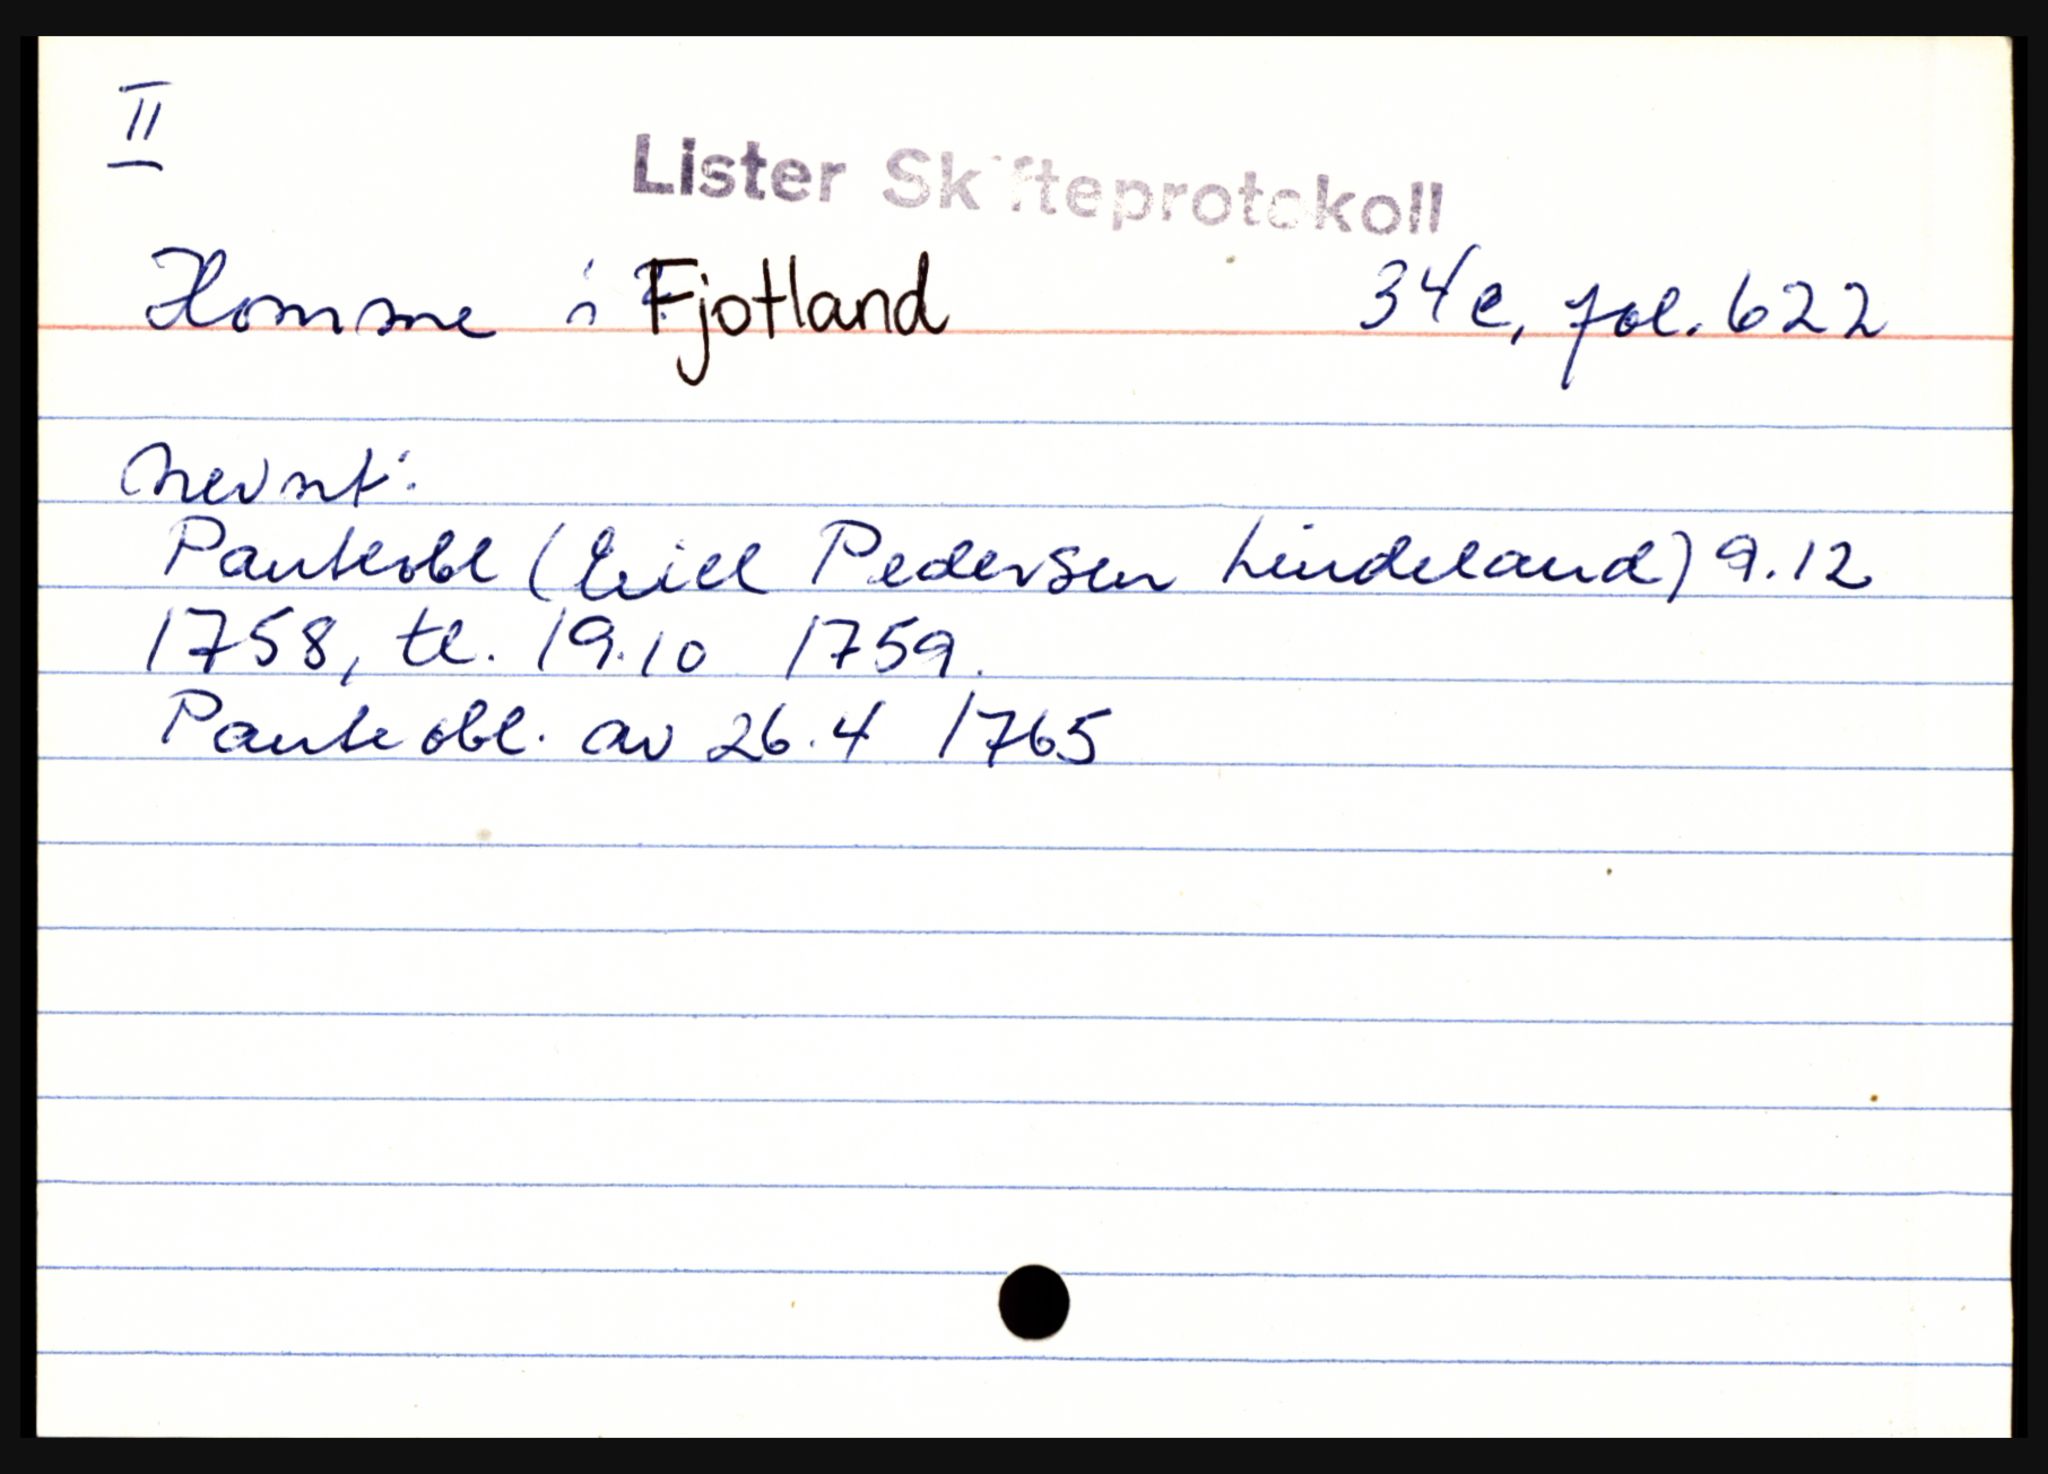 II
Lister Skifteprotokoll
Homme i Fjotland 34c, fol. 622
Nevnt:
Panteobl (Eiell Pedersen Lindeland) 9.12
1758, tl. 19.10 1759.
Panteobl. av 26.4 1765